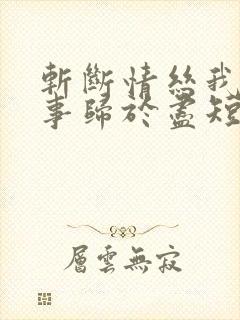 斬斷情絲我
事歸於盡短
層雲無寂